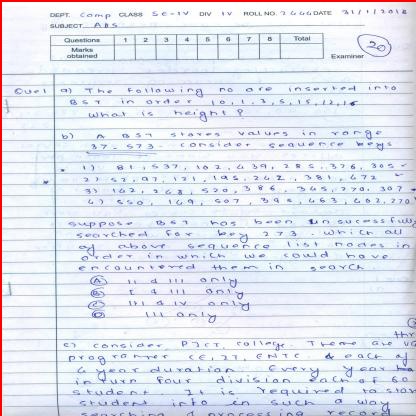 DEPT. Comp CLASS SE-IV DIV IV ROLL NO. 2444 DATE 31/1/2018
SUBJECT ADS
Questions 1 2 3 4 5 6 7 8 Total
Marks obtained
Examiner
20
Que1 a) The following no are inserted into
BST in order 10, 1, 3, 5, 15, 12, 16
What is height?
b) A BST stores values in range
37-573. consider sequence keys
1) 81, 537, 102, 439, 285, 376, 305
2) 52, 97, 121, 195, 242, 381, 472
3) 142, 248, 520, 386, 345, 270, 307
4) 550, 149, 507, 395, 463, 402, 270
suppose BST has been unsucessfully
searched for key 273. which all
of above sequence list nodes in
order in which we could have
encountered them in search.
A II & III only
B I & III only
C III & IV only
D III only
c) consider PJCT, college. There are
programmer CE, IT, ENTC. & each of
4 year duration. Every year
in turn four division each of 60
student. It is required to store
student into in such a way
searching & processing